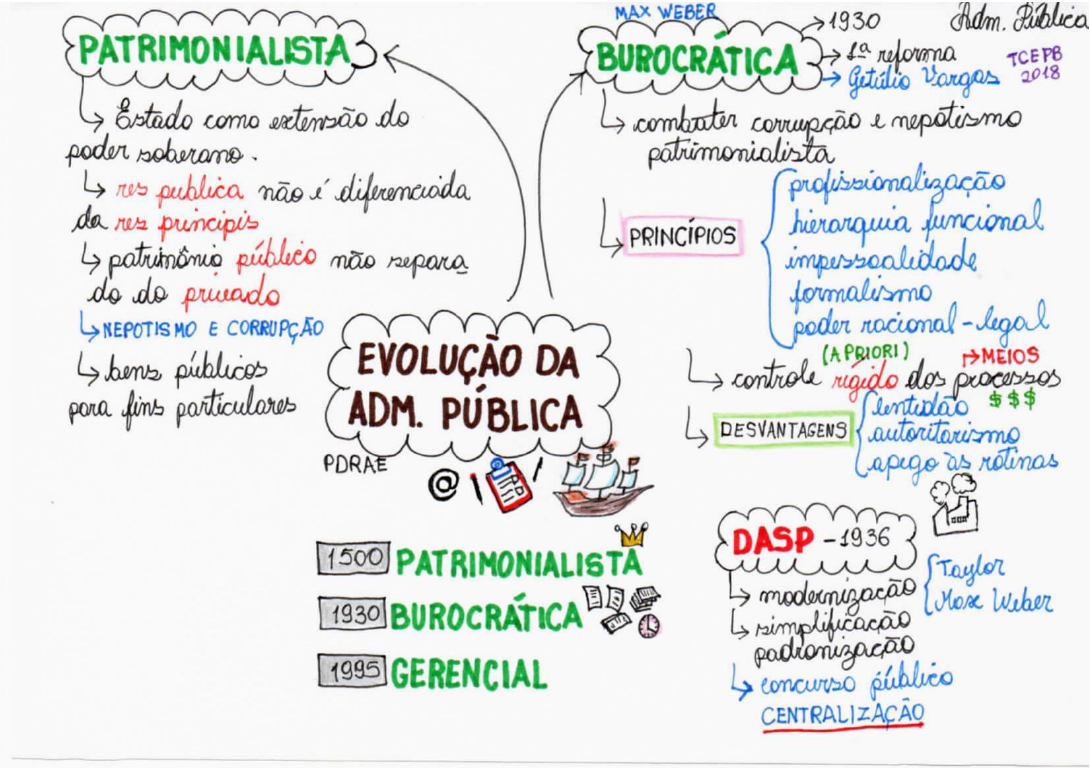 Adm. Pública
TCE PB
2018
PATRIMONIALISTA
↳ Estado como extensão do
poder soberano.
↳ res publica não é diferenciada
da res principis
↳ patrimônio público não separa
do do privado
↳ NEPOTISMO E CORRUPÇÃO
↳ bens públicos
para fins particulares
MAX WEBER
BUROCRÁTICA
→ 1930
→ 1ª reforma
→ Getúlio Vargas
↳ combater corrupção e nepotismo
patrimonialista
↳ PRINCÍPIOS
profissionalização
hierarquia funcional
impessoalidade
formalismo
poder racional-legal
(A PRIORI) → MEIOS
↳ controle rígido dos processos
$$$
↳ DESVANTAGENS
lentidão
autoritarismo
apego às rotinas
EVOLUÇÃO DA
ADM. PÚBLICA
PDRAE
@
1500 PATRIMONIALISTA
1930 BUROCRÁTICA
1995 GERENCIAL
DASP - 1936
↳ modernização
↳ simplificação
padronização
↳ concurso público
CENTRALIZAÇÃO
Taylor
Max Weber